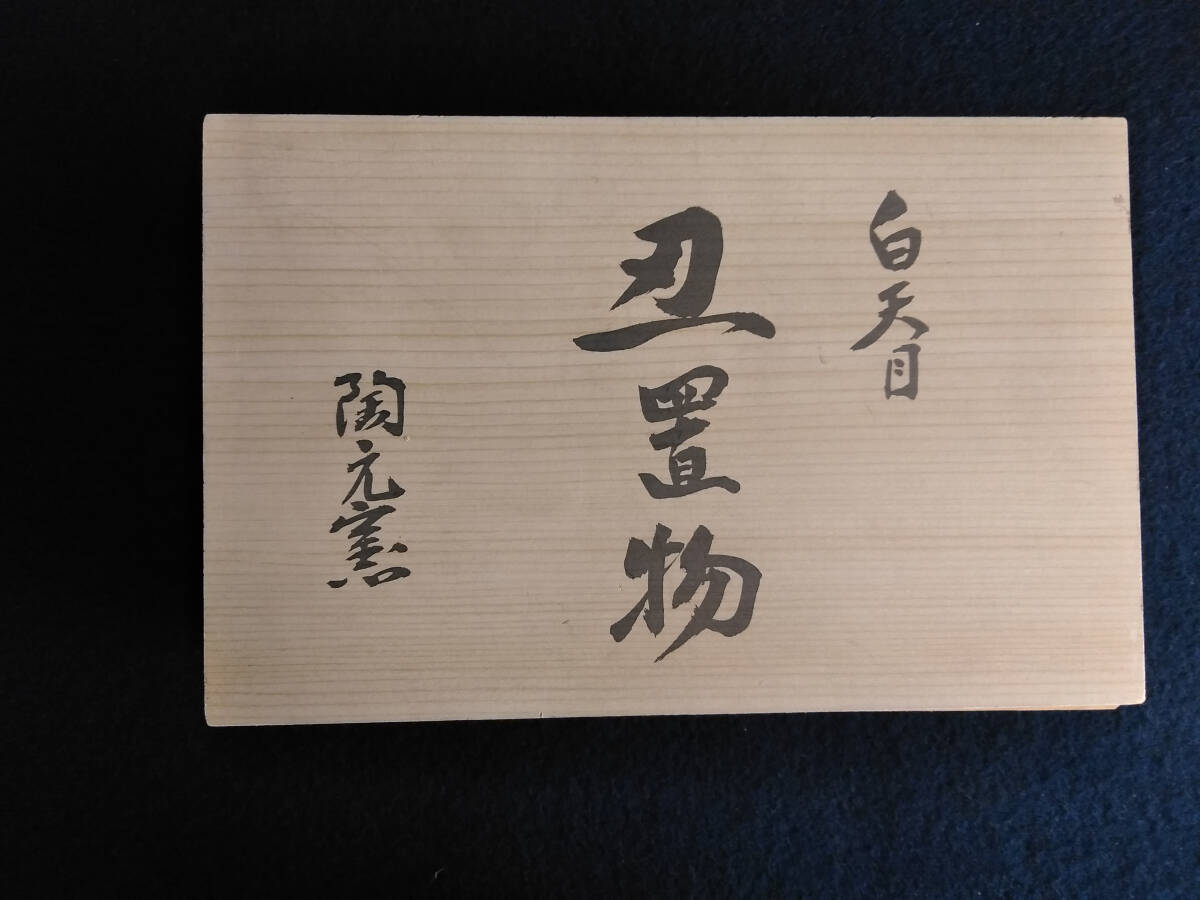 白天目
丑置物
陶元窯